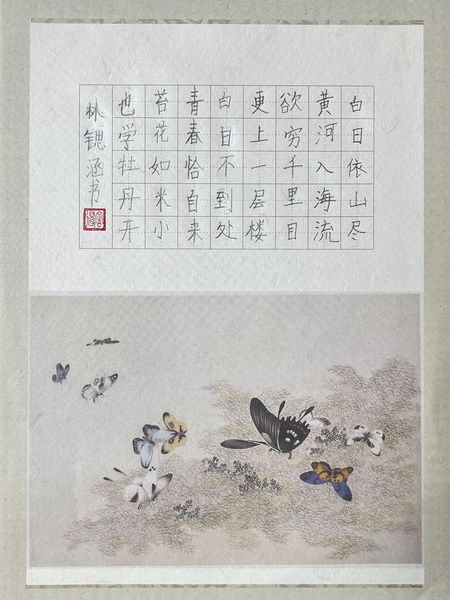 白日依山尽
黄河入海流
欲穷千里目
更上一层楼
白日不到处
青春恰自来
苔花如米小
也学牡丹开
林锶涵书